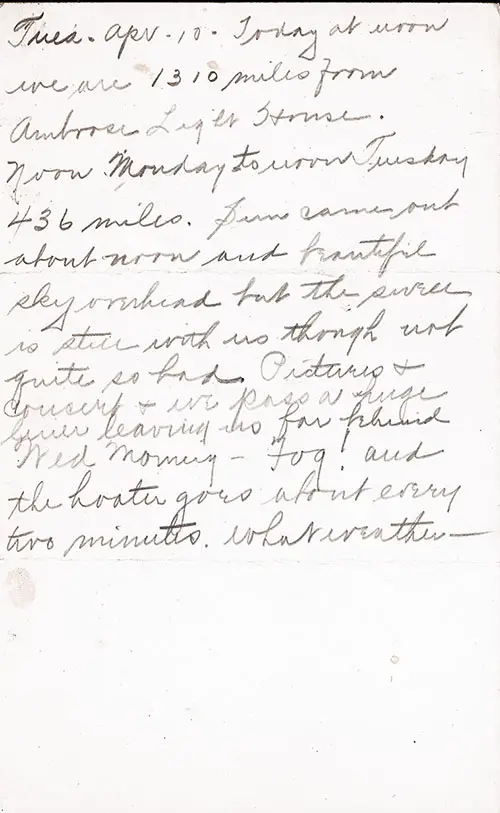 Tues. Apr. 10. Today at noon
we are 1310 miles from
Ambrose Light House.
Noon Monday to noon Tuesday
436 miles. Sun came out
about noon and beautiful
sky overhead but the swell
is still with us though not
quite so bad. Pictures &
concert & we pass a huge
liner leaving us far behind
Wed Morning - Fog! and
the hooter goes about every
two minutes. What weather—